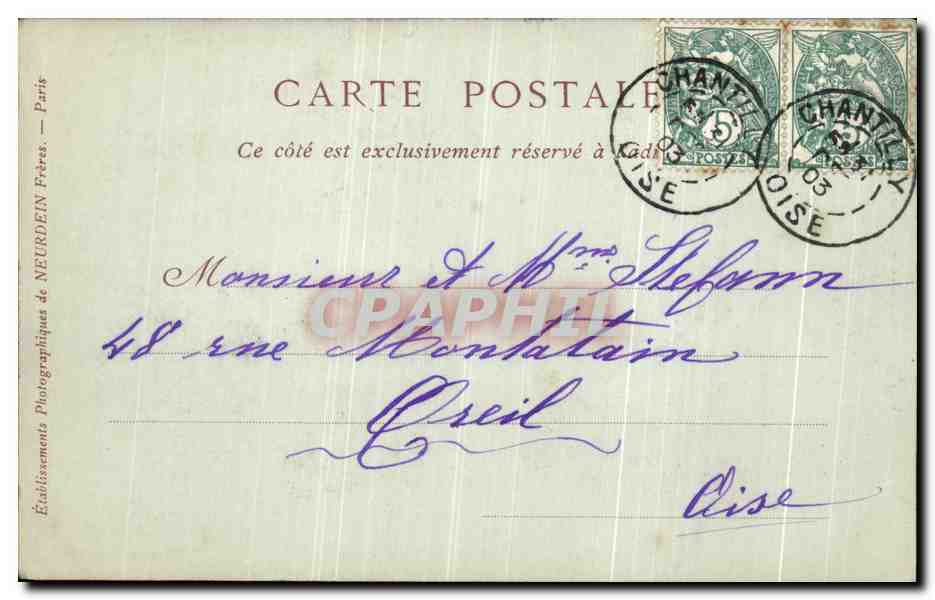 CARTE POSTALE
Ce côté est exclusivement réservé à l'adr
Monsieur et Mme Stefann
48 rue Montatain
Creil
Oise
Établissements Photographiques de NEURDEIN Frères. — Paris
CHANTILLY
03
OISE
CHANTILLY
03
OISE
5
POSTES
5
POSTES
CPAPHIL